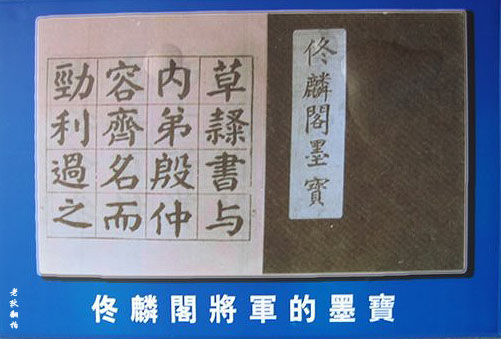 草隸書与
内弟殷仲
容齊名而
勁利過之
佟麟閣墨寶
佟麟閣將軍的墨寶
老狄翻拍